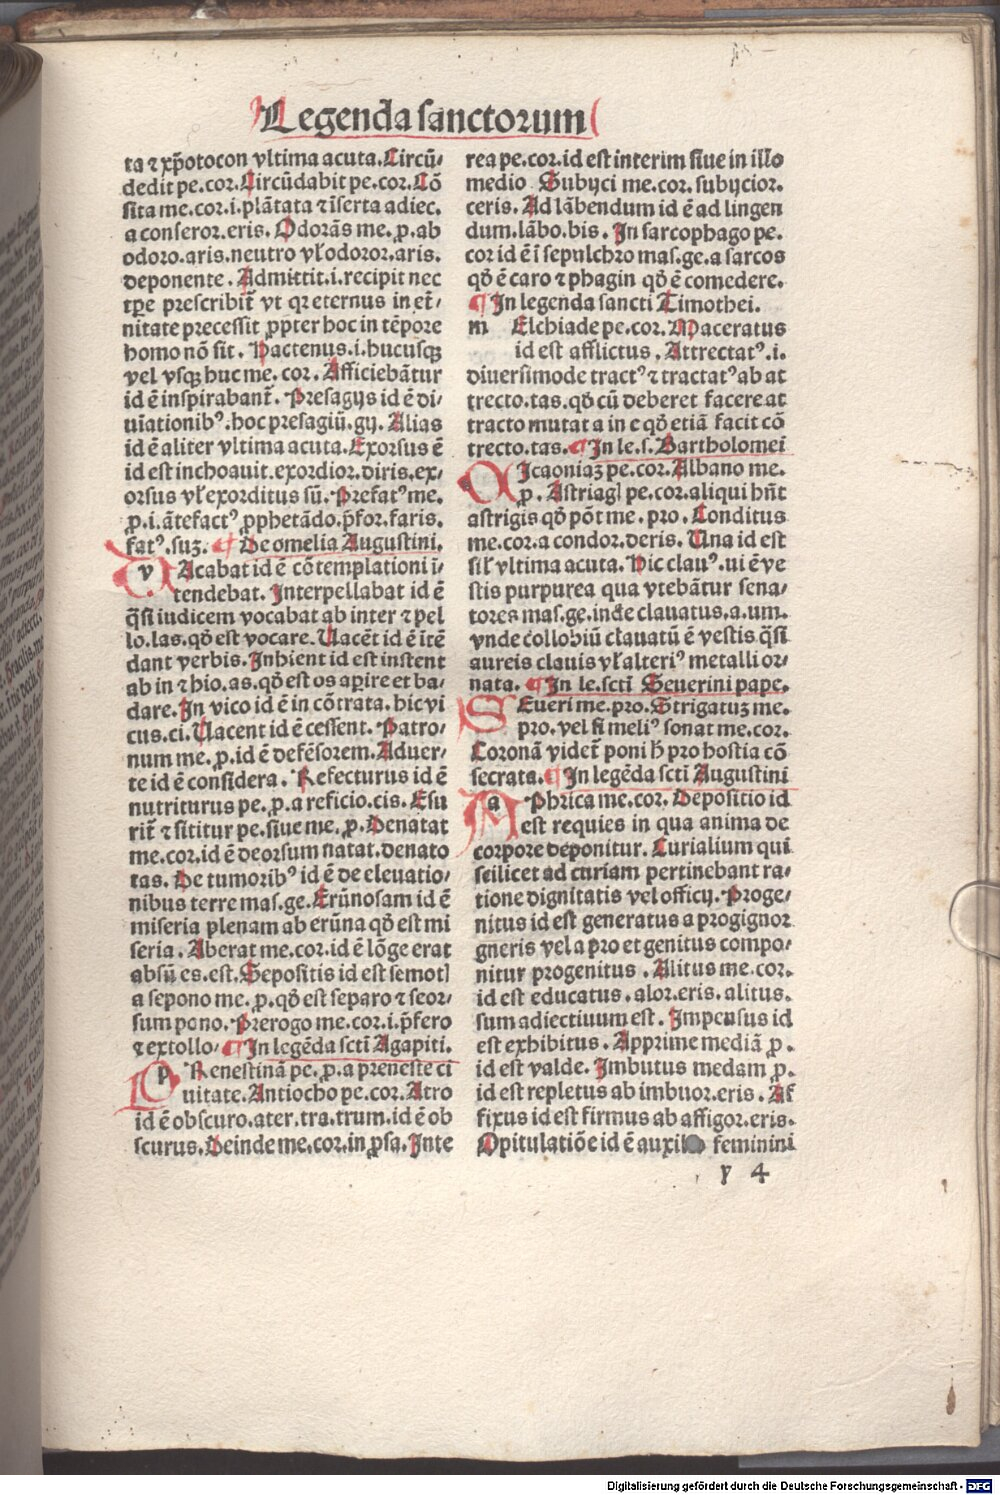 Legenda sanctorum
ta ⁊ xp̄otocon vltima acuta. Circū-
dedit pe. cor. Circūdabit pe. cor. Cō
sita me. cor. i. plātata ⁊ īserta adiec.
a conseror. eris. Odorās me. ꝓ. ab
odoro. aris. neutro vł odoror. aris.
deponente. Admittit. i. recipit nec
tꝑe prescribit̄ vt qꝛ eternus in et̄-
nitate precessit ꝓpter hoc in tēpore
homo nō sit. Hactenus. i. hucusqꝫ
vel vsqꝫ huc me. cor. Afficiebātur
id ē inspirabant̄. Presagijs id ē di-
uiationibꝰ. hoc presagiū. gij. Alias
id ē aliter vltima acuta. Exorsus ē
id est inchoauit. exordior. diris. ex-
orsus vł exorditus sū. Prefatꝰ me.
ꝓ. i. āte factꝰ ꝓphetādo. p̄for. faris.
fatꝰ. suꝫ. ¶ De omelia Augustini.
v Acabat id ē cōtemplationi ī-
tendebat. Interpellabat id ē
q̄si iudicem vocabat ab inter ⁊ pel
lo. las. qd̄ est vocare. Uacēt id ē itē
dant verbis. Inhient id est instent
ab in ⁊ hio. as. qd̄ est os aꝑire et ba-
dare. In vico id ē in cōtrata. hic vi
cus. ci. Uacent id ē cessent. Patro-
num me. ꝓ. id ē defēsorem. Aduer-
te id ē considera. Refecturus id ē
nutriturus pe. ꝓ. a reficio. cis. Esu
rit̄ ⁊ sititur pe. siue me. ꝓ. Denatat
me. cor. id ē deorsum natat. denato
tas. De tumoribꝰ id ē de eleuatio-
nibus terre mas. ge. Erūnosam id ē
miseria plenam ab erūna qd̄ est mi
seria. Aberat me. cor. id ē lōge erat
absū es. est. Sepositis id est semotꝭ
a sepono me. ꝓ. qd̄ est separo ⁊ seor-
sum pono. Prerogo me. cor. i. p̄fero
⁊ extollo. ¶ In legēda sctī Agapiti.
p Renestinā pe. ꝓ. a preneste ci
uitate. Antiocho pe. cor. Atro
id ē obscuro. ater. tra. trum. id ē ob
scurus. Deinde me. cor. in ꝓsa. Inte
rea pe. cor. id est interim siue in illo
medio Subijci me. cor. subijcior.
ceris. Ad lābendum id ē ad lingen
dum. lābo. bis. In sarcophago pe.
cor id ē ī sepulchro mas. ge. a sarcos
qd̄ ē caro ⁊ phagin qd̄ ē comedere.
¶ In legenda sancti Timothei.
m Elchiade pe. cor. Maceratus
id est afflictus. Attrectatꝰ. i.
diuersimode tractꝰ ⁊ tractatꝰ ab at
trecto. tas. qd̄ cū deberet facere at
tracto mutat a in e qd̄ etiā facit cō
trecto. tas. ¶ In le. s. Bartholomei
Icaoniaꝫ pe. cor. Albano me.
ꝓ. Astriagꝭ pe. cor. aliqui hn̄t
astrigis qd̄ pōt me. pro. Conditus
me. cor. a condor. deris. Una id est
sił vltima acuta. Hic clauꝰ. ui ē ve
stis purpurea qua vtebātur sena-
tores mas. ge. inde clauatus. a. um.
vnde collobiū clauatū ē vestis q̄si
aureis clauis vł alteriꝰ metalli or-
nata. ¶ In le. sctī Seuerini pape.
SEueri me. pro. Strigatuꝫ me.
pro. vel si meliꝰ sonat me. cor.
Coronā videt̄ poni h̄ pro hostia cō
secrata. ¶ In legēda sctī Augustini
a Phrica me. cor. Depositio id
est requies in qua anima de
corpore deponitur. Curialium qui
scilicet ad curiam pertinebant ra-
tione dignitatis vel officij. Proge-
nitus id est generatus a progignor
gneris vel a pro et genitus compo-
nitur progenitus. Alitus me. cor.
id est educatus. alor. eris. alitus.
sum adiectiuum est. Impensus id
est exhibitus. Apprime mediā ꝓ.
id est valde. Imbutus medam ꝓ.
id est repletus ab imbuor. eris. Af
fixus id est firmus ab affigor. eris.
Opitulatiōe id ē auxilo feminini
y 4
Digitalisierung gefördert durch die Deutsche Forschungsgemeinschaft - DFG